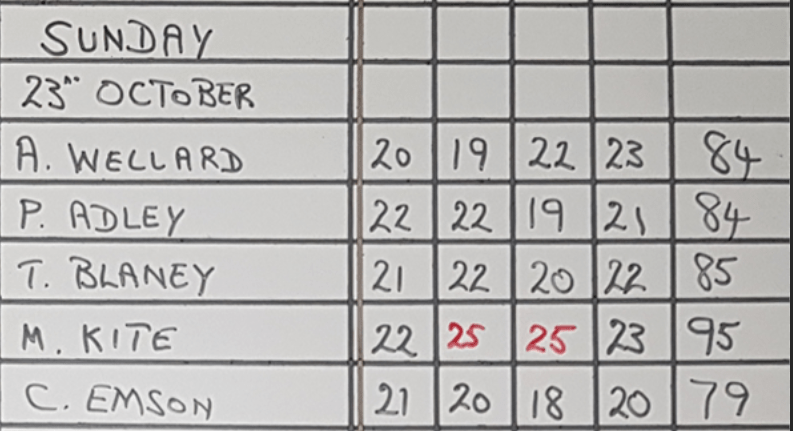 SUNDAY
23RD OCTOBER
A. WELLARD 20 19 22 23 84
P. ADLEY 22 22 19 21 84
T. BLANEY 21 22 20 22 85
M. KITE 22 25 25 23 95
C. EMSON 21 20 18 20 79